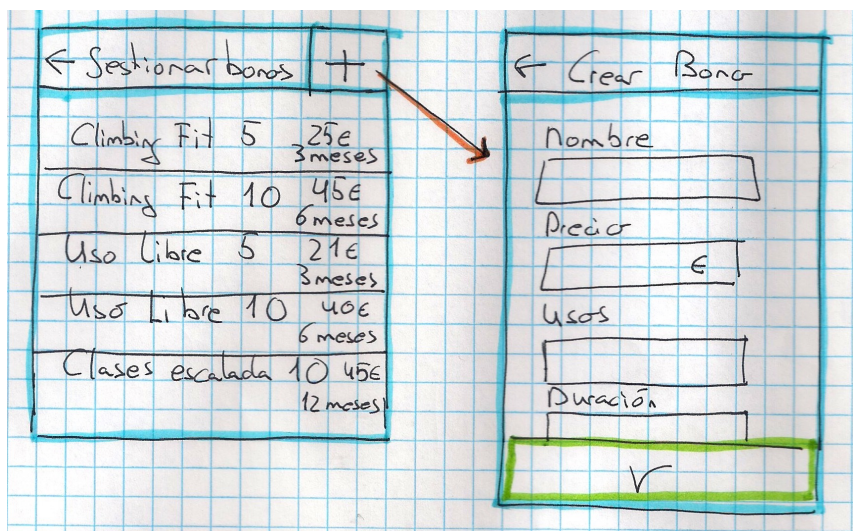 ← Gestionar bonos +
Climbing Fit 5 25€
3 meses
Climbing Fit 10 45€
6 meses
Uso Libre 5 21€
3 meses
Uso Libre 10 40€
6 meses
Clases escalada 10 45€
12 meses
← Crear Bono
Nombre
Precio
€
Usos
Duración
✓